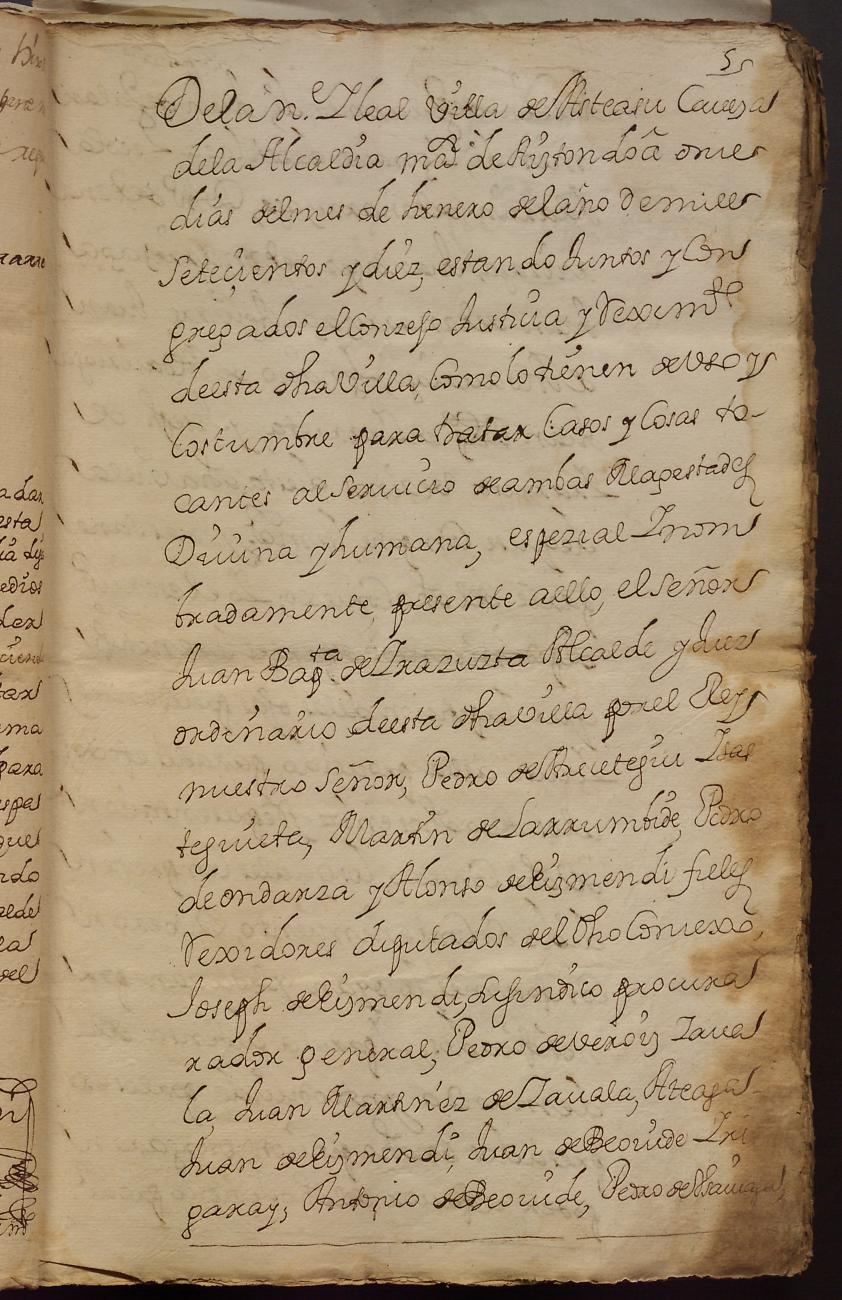 5
Dela n.e Y leal Villa de Asteasu Caueza
dela Alcaldia maor de Aiztondo â onze
dias del mes de henero del año de mill
Seteçientos y diez, estando Juntos y Con
gregados el Conzejo Justicia y Reximto
de esta dha Villa, Como lo tienen de Vso y
Costumbre para tratar Casos y Cosas to-
cantes al Seruicio de ambas Magestades
Diuina y humana, espezial Y nom
bradamente, presente a ello, el Señor
Juan Bapta. de Yrazuzta Alcalde y Juez
ordinario de esta dha Villa por el Rey
nuestro Señor, Pedro de Ysas
teguieta, Martin de Larrumbide, Pedro
de ondarza y Alonso de Eizmendi fieles
Rexidores diputados del dho Conzexo,
Joseph de Eizmendi, Sindico procura
rador general, Pedro de Veroiz Zaua
la, Juan Martinez de Zauala, Ateaga
Juan de Eizmendi, Juan de Beouide Yri
garay, Antonio de Beouide, Pedro de